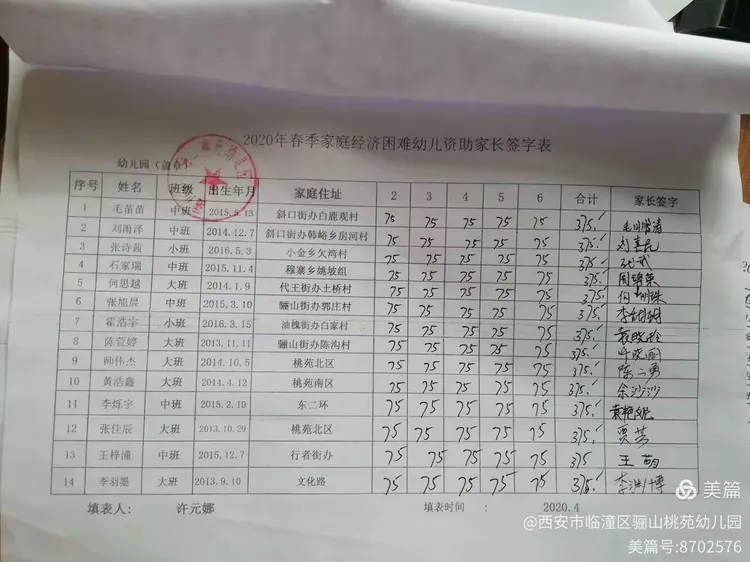 2020年春季家庭经济困难幼儿资助家长签字表
幼儿园（盖章）
序号 姓名 班级 出生年月 家庭住址 2 3 4 5 6 合计 家长签字
1 毛苗苗 中班 2015.5.13 斜口街办白鹿观村 75 75 75 75 75 375.
2 刘雨泽 中班 2014.12.7 斜口街办韩峪乡房河村 75 75 75 75 75 375.
3 张诗茜 小班 2016.5.3 小金乡欠湾村 75 75 75 75 75 375.
4 石家瑞 中班 2015.11.4 穆寨乡姚坡组 75 75 75 75 75 375.
5 何思越 大班 2014.1.9 代王街办土桥村 75 75 75 75 75 375.
6 张旭晨 中班 2015.3.10 骊山街办郭庄村 75 75 75 75 75 375.
7 霍浩宇 小班 2016.3.15 油槐街办白家村 75 75 75 75 75 375.
8 陈萱婷 大班 2013.11.11 骊山街办陈沟村 75 75 75 75 75 375.
9 师伟杰 大班 2014.10.5 桃苑北区 75 75 75 75 75 375.
10 黄浩鑫 大班 2014.4.12 桃苑南区 75 75 75 75 75 375.
11 李烁宇 中班 2015.2.10 东二环 75 75 75 75 75 375.
12 张佳辰 大班 2013.10.29 桃苑北区 75 75 75 75 75 375.
13 王梓潼 中班 2015.12.7 行者街办 75 75 75 75 75 375 王萌
14 李羽墨 大班 2013.9.10 文化路 75 75 75 75 75 375.
填表人： 许元娜 填表时间 ： 2020.4
美篇
@西安市临潼区骊山桃苑幼儿园
美篇号:8702576